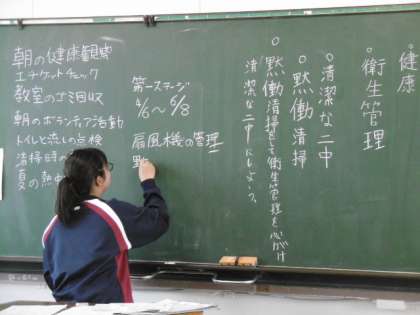 健康
衛生管理
清潔な二中
黙働清掃
黙働清掃をして衛生管理を心がけ
清潔な二中にしよう。
朝の健康観察
エチケットチェック
教室のゴミ回収
朝のボランティア活動
トイレと流しの点検
清掃時
夏の熱中
第一ステージ
4/6〜6/8
扇風機の管理